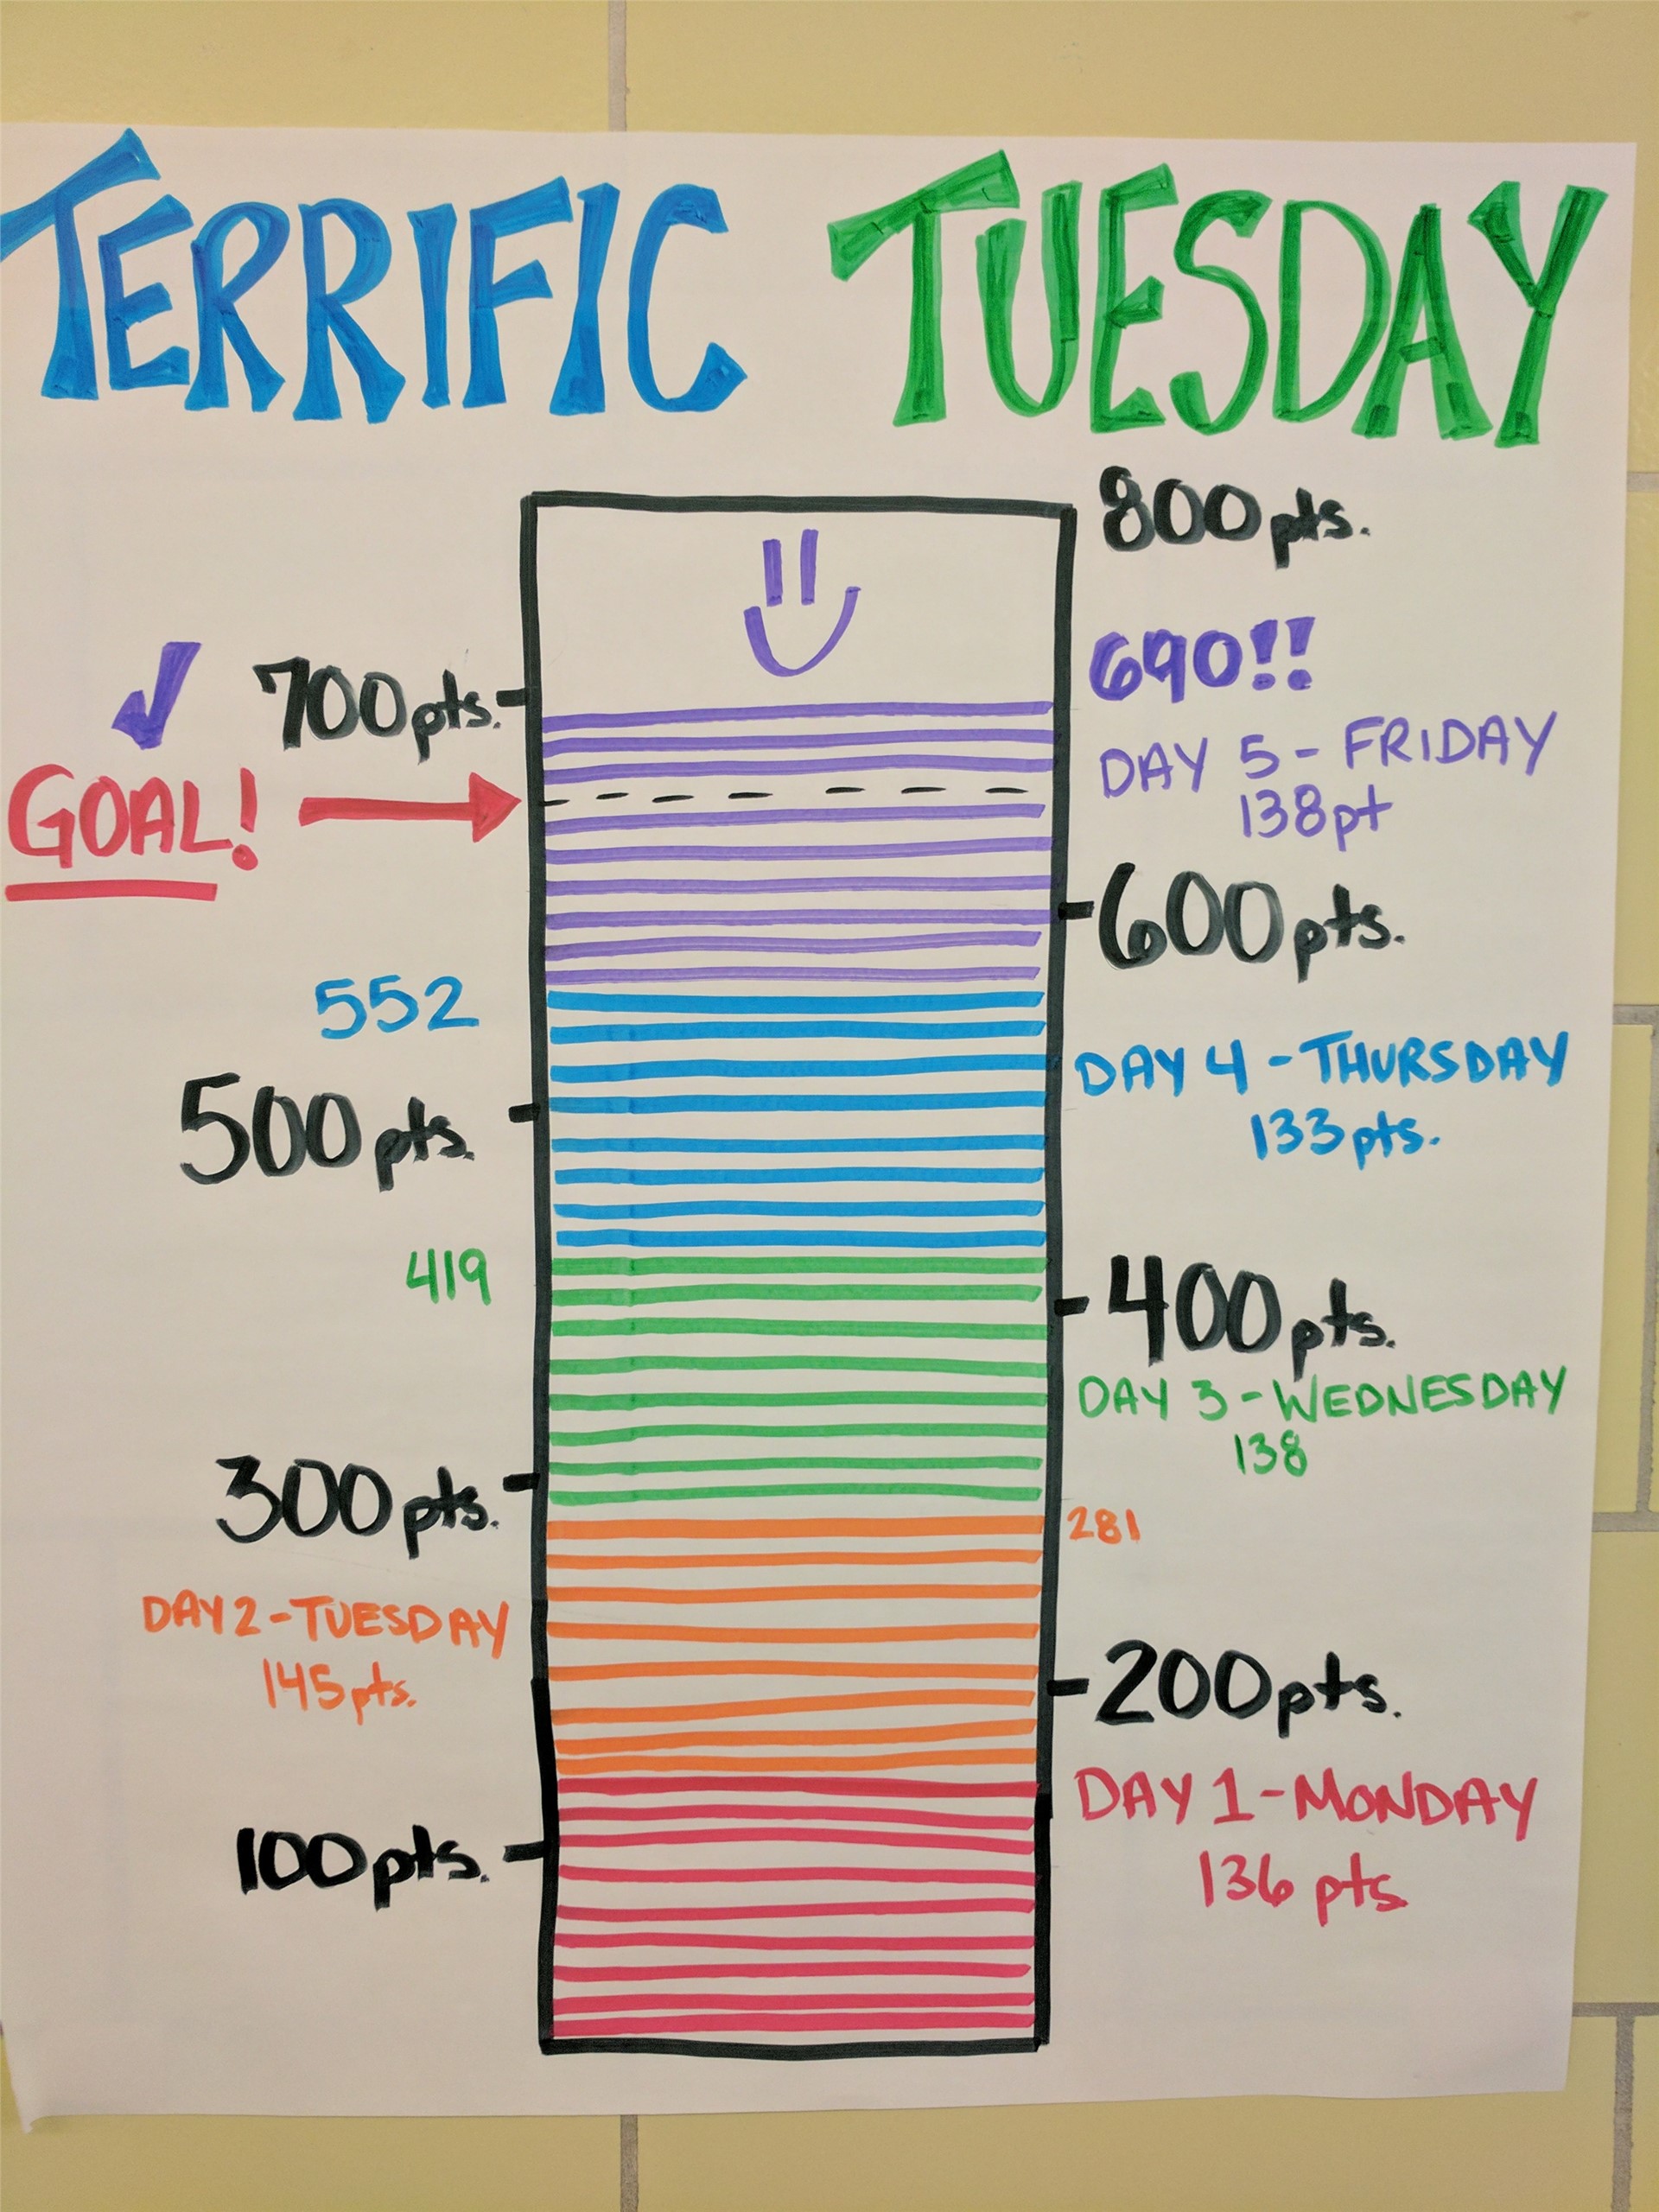 TERRIFIC TUESDAY
800pts.
690!!
700pts.
DAY 5 - FRIDAY
138pt
GOAL!
600pts.
552
DAY 4 - THURSDAY
133pts.
500pts.
419
400pts.
DAY 3 - WEDNESDAY
138
300pts.
281
DAY 2 - TUESDAY
145pts.
200pts.
DAY 1 - MONDAY
136 pts
100pts.